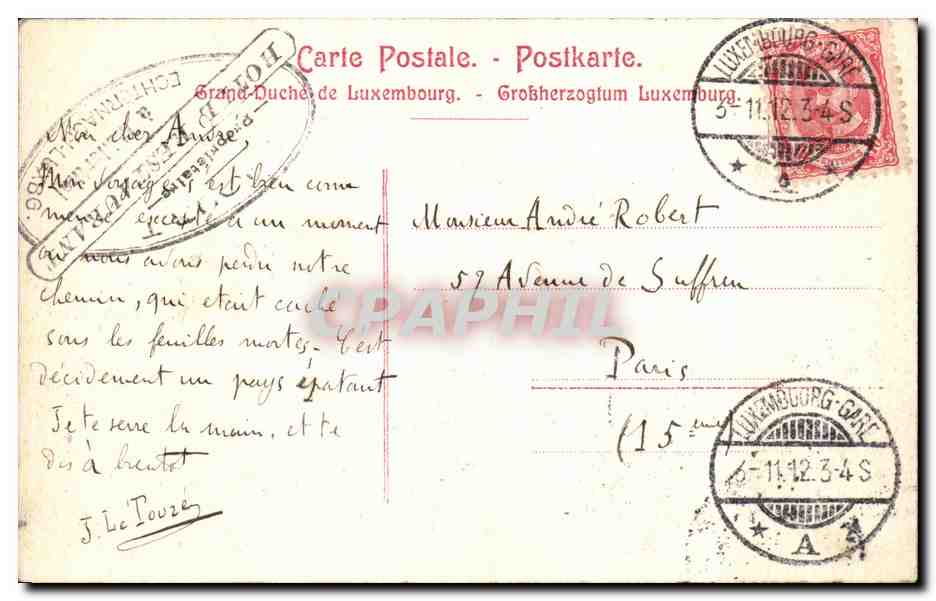 Carte Postale. - Postkarte.
Grand-Duché de Luxembourg. - Großherzogtum Luxemburg.
LUXEMBOURG-GARE
3-11.12.3-4 S
HOTEL
RESTAURANT
Propriétaire
ECHTERNACH
Mon cher André
Mon voyage s'est bien comme
mencé excepté à un moment
où nous avons perdu notre
chemin, qui était caché
sous les feuilles mortes - C'est
décidement un pays épatant
Je te serre la main, et te
dis à bientôt
J. Le Touzé
Monsieur André Robert
57 Avenue de Suffren
Paris
(15ème)
LUXEMBOURG-GARE
3-11.12.3-4 S
A
CPAPHIL